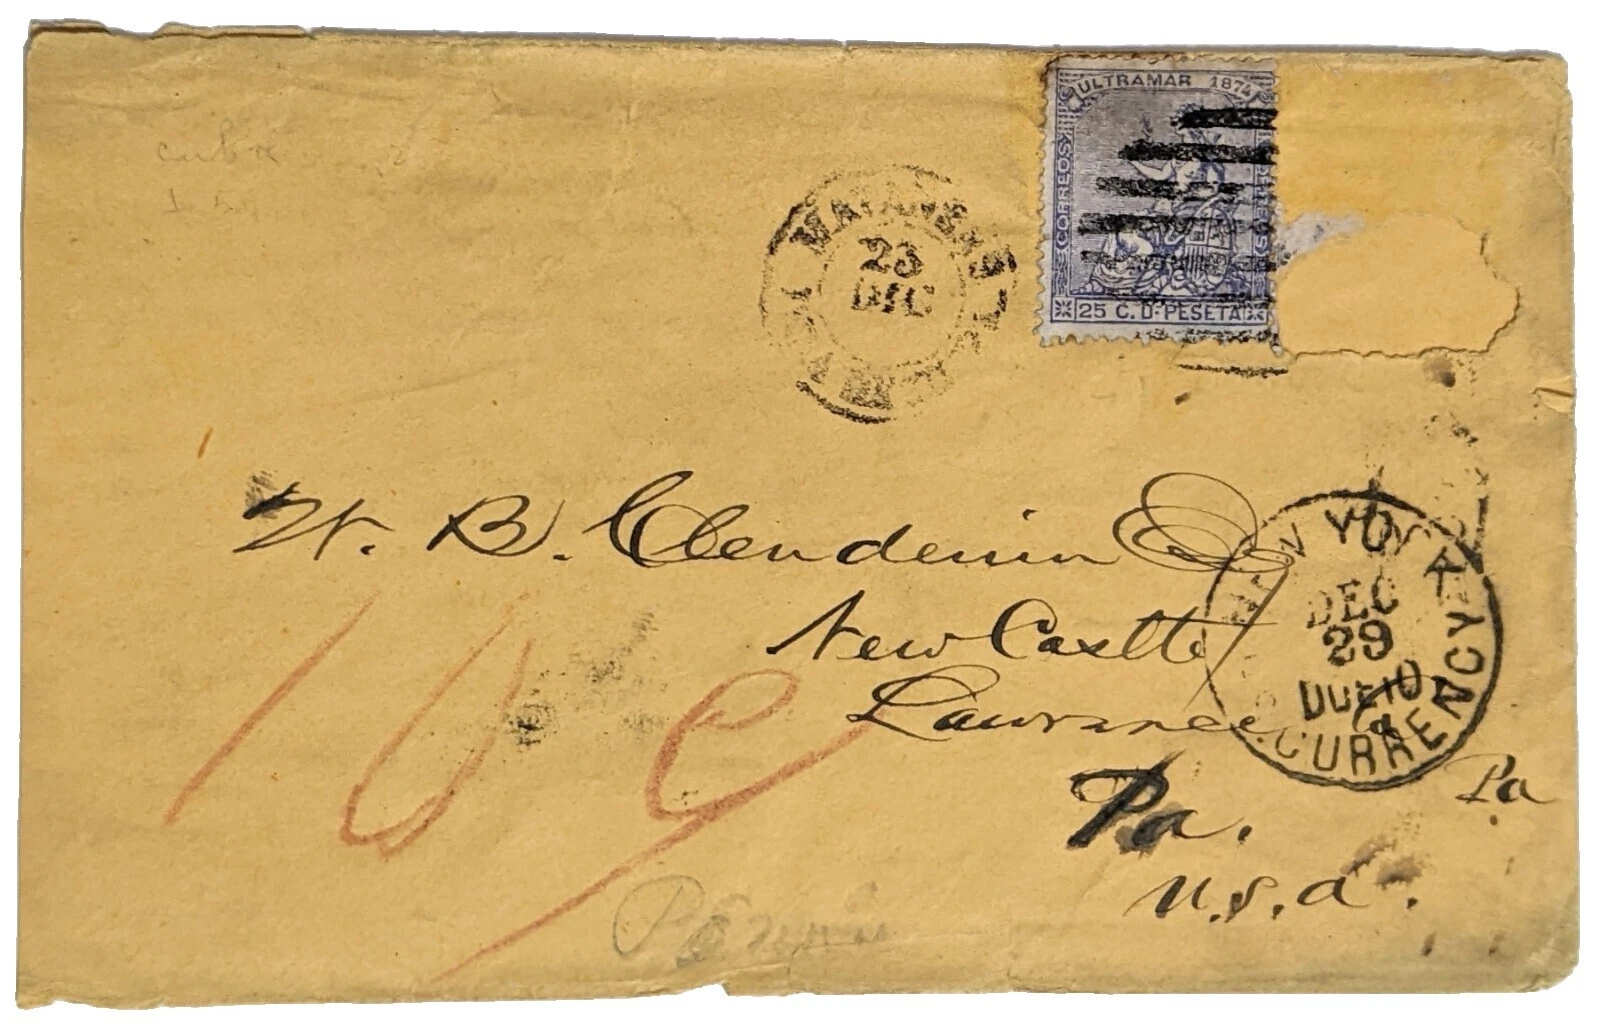 cuba
ULTRAMAR 1874
CORREOS
25 C. D. PESETA
MATANZAS
23
DIC
W. B. Clendenin
New Castle
Lawrence
Pa.
U.S.A.
NEW YORK
DEC
29
DUE 10
U.S. CURRENCY
Pa
10 c